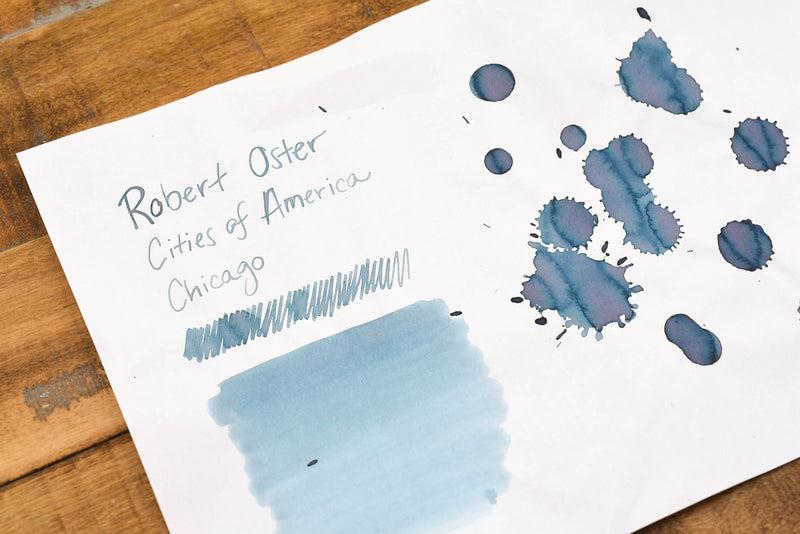 Robert Oster
Cities of America
Chicago